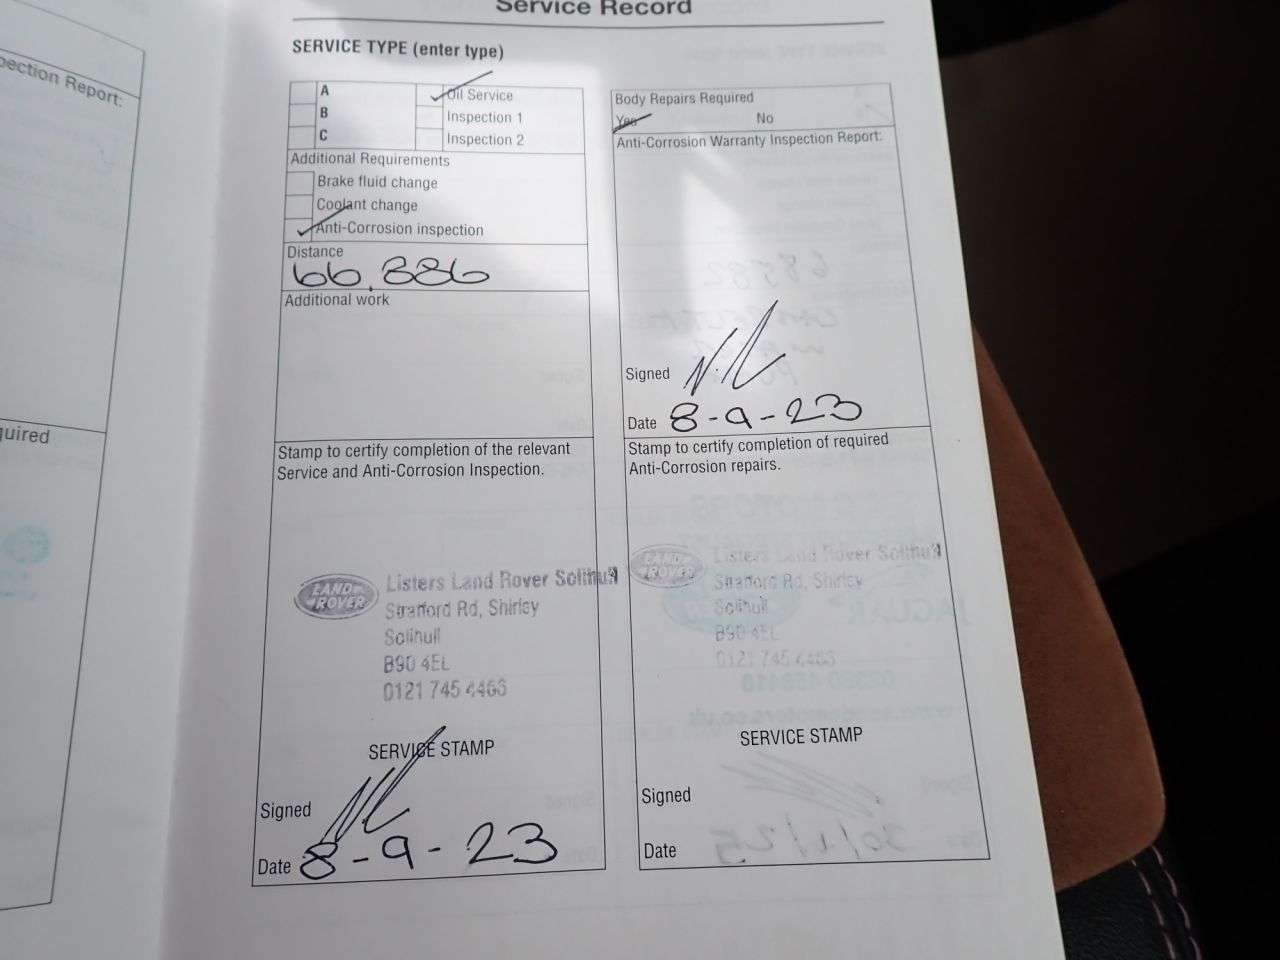 Service Record
SERVICE TYPE (enter type)
A
B
C
Oil Service
Inspection 1
Inspection 2
Additional Requirements
Brake fluid change
Coolant change
Anti-Corrosion inspection
Distance
66,886
Additional work
Stamp to certify completion of the relevant
Service and Anti-Corrosion Inspection.
LAND ROVER
Listers Land Rover Solihull
Stratford Rd, Shirley
Solihull
B90 4EL
0121 745 4466
SERVICE STAMP
Signed
Date 8-9-23
Body Repairs Required
Yes No
Anti-Corrosion Warranty Inspection Report:
Signed
Date 8-9-23
Stamp to certify completion of required
Anti-Corrosion repairs.
LAND ROVER
Listers Land Rover Solihull
Stratford Rd, Shirley
Solihull
B90 4EL
0121 745 4466
SERVICE STAMP
Signed
Date